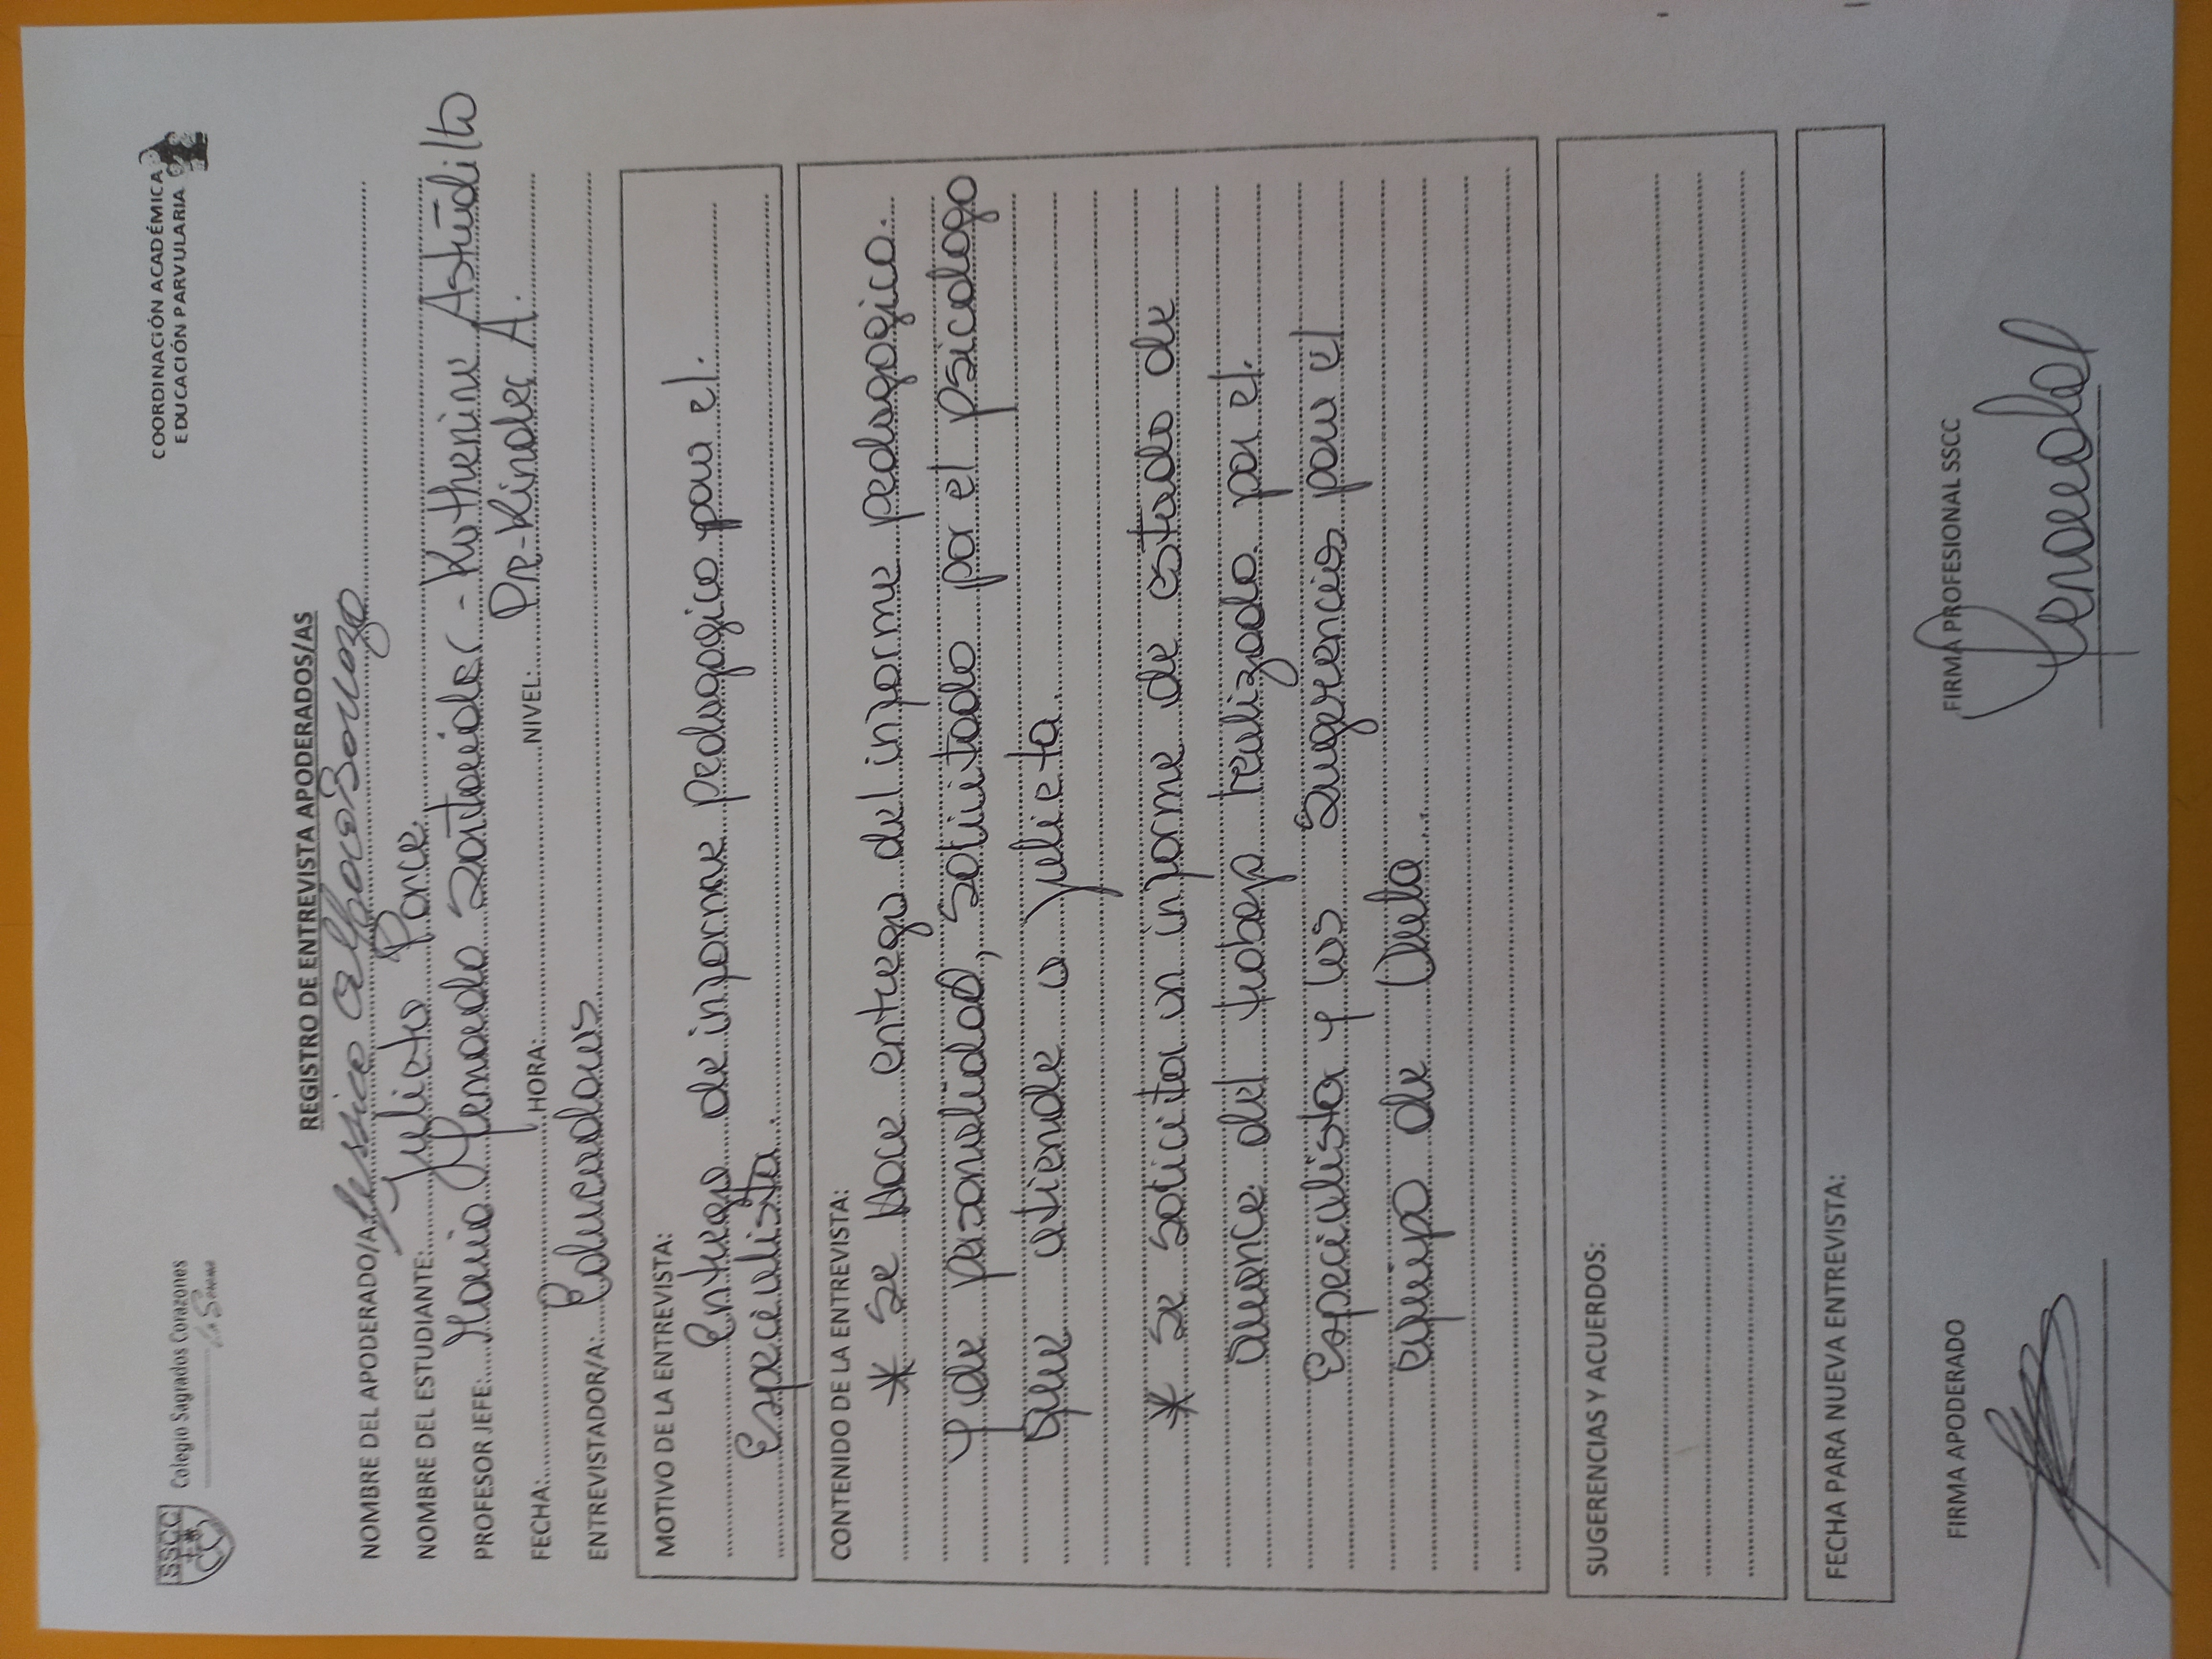 SSCC
Colegio Sagrados Corazones
COORDINACIÓN ACADÉMICA
EDUCACIÓN PARVULARIA
REGISTRO DE ENTREVISTA APODERADOS/AS
NOMBRE DEL APODERADO/A: Jessica
NOMBRE DEL ESTUDIANTE: Julieta Ponce.
PROFESOR JEFE: María Fernanda Santander - Katherine Astudillo
FECHA: HORA: NIVEL: Pre-Kinder A.
ENTREVISTADOR/A: Educadoras
MOTIVO DE LA ENTREVISTA:
Entrega de informe pedagogico para el.
Especialista.
CONTENIDO DE LA ENTREVISTA:
* Se Hace entrega del informe pedagogico.
y de personalidad, solicitado por el psicologo
Que atiende a Julieta.
* Se solicita un informe de estado de
Avance del trabajo realizado por el.
Especialista y las Sugerencias para el
equipo de Aula.
SUGERENCIAS Y ACUERDOS:
FECHA PARA NUEVA ENTREVISTA:
FIRMA APODERADO
FIRMA PROFESIONAL SSCC